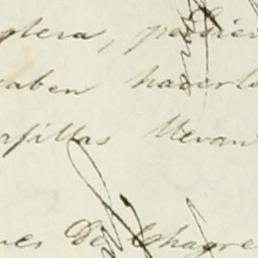 glera, pudién
saben hacerlo
asillas llevan
ues De Chagre